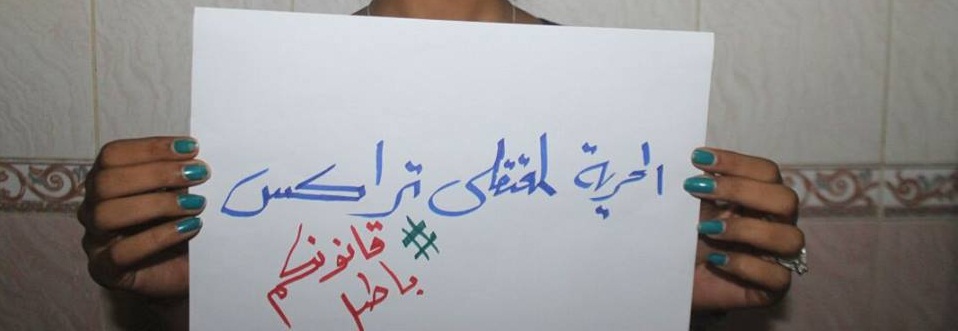 الحرية لمعتقلى تراكس
#قانونكم
باطل